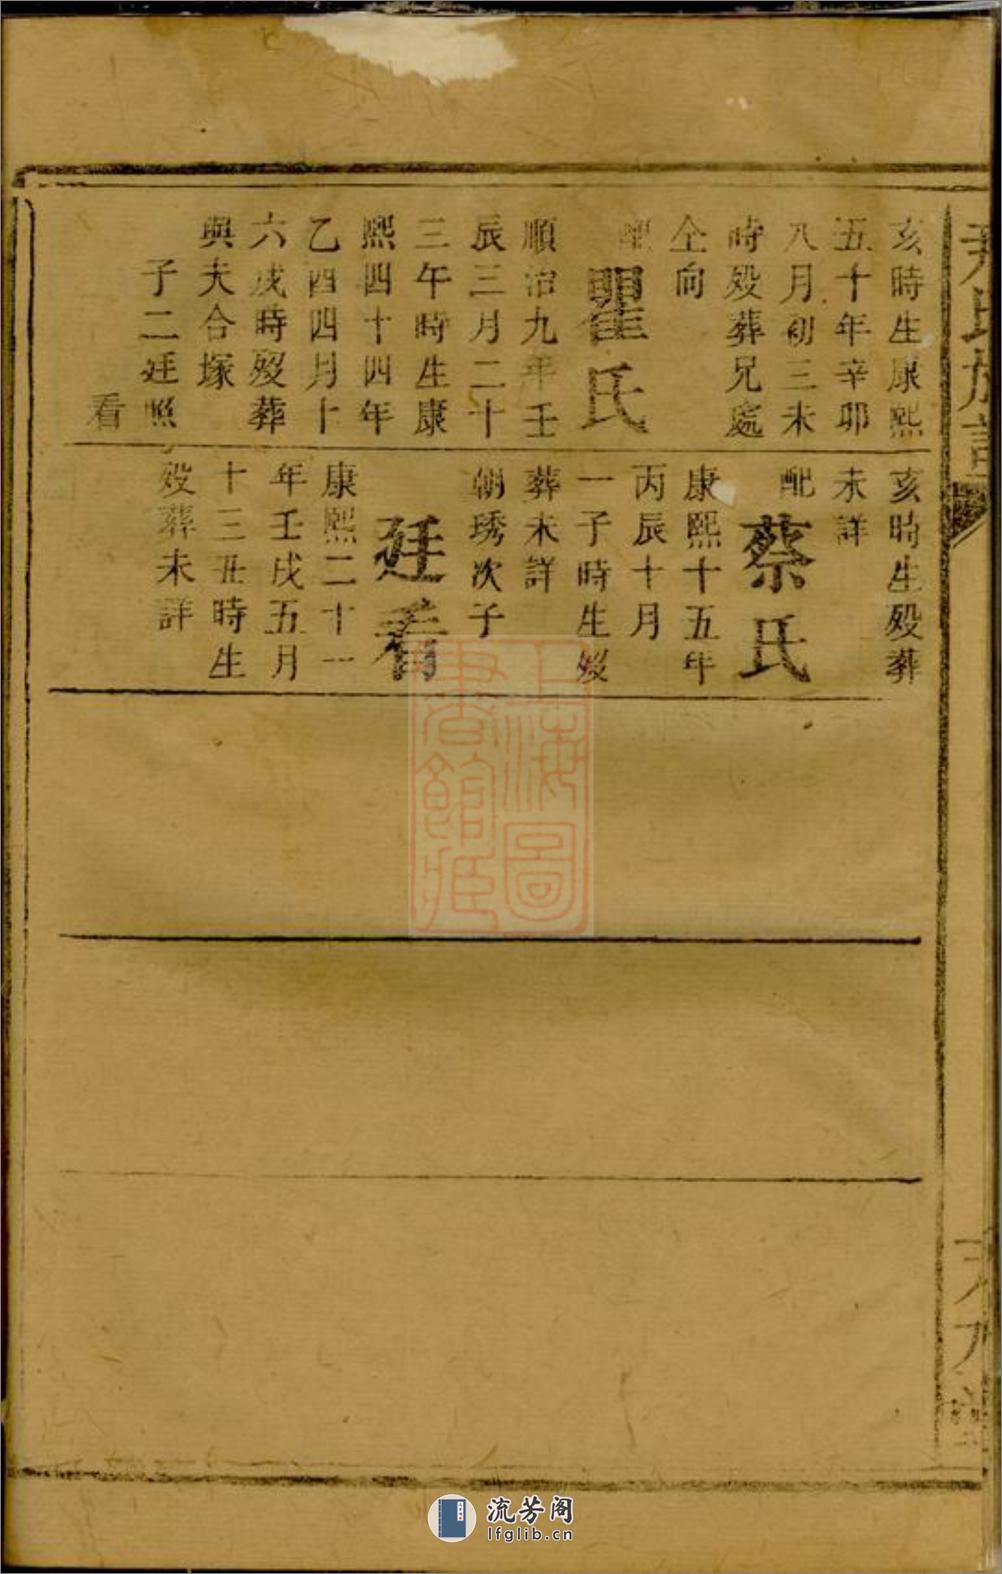 亥時生康熙
五十年辛卯
八月初三未
時殁葬兄處
仝向
配
瞿氏
順治九年壬
辰三月二十
三午時生康
熙四十四年
乙酉四月十
六戌時殁葬
與夫合塚
子二廷照
看
亥時生殁葬
未詳
配
蔡氏
康熙十五年
丙辰十月
一子時生殁
葬未詳
朝琇次子
廷看
康熙二十一
年壬戌五月
十三丑時生
殁葬未詳
上海圖
書館藏
流芳阁
lfglib.cn